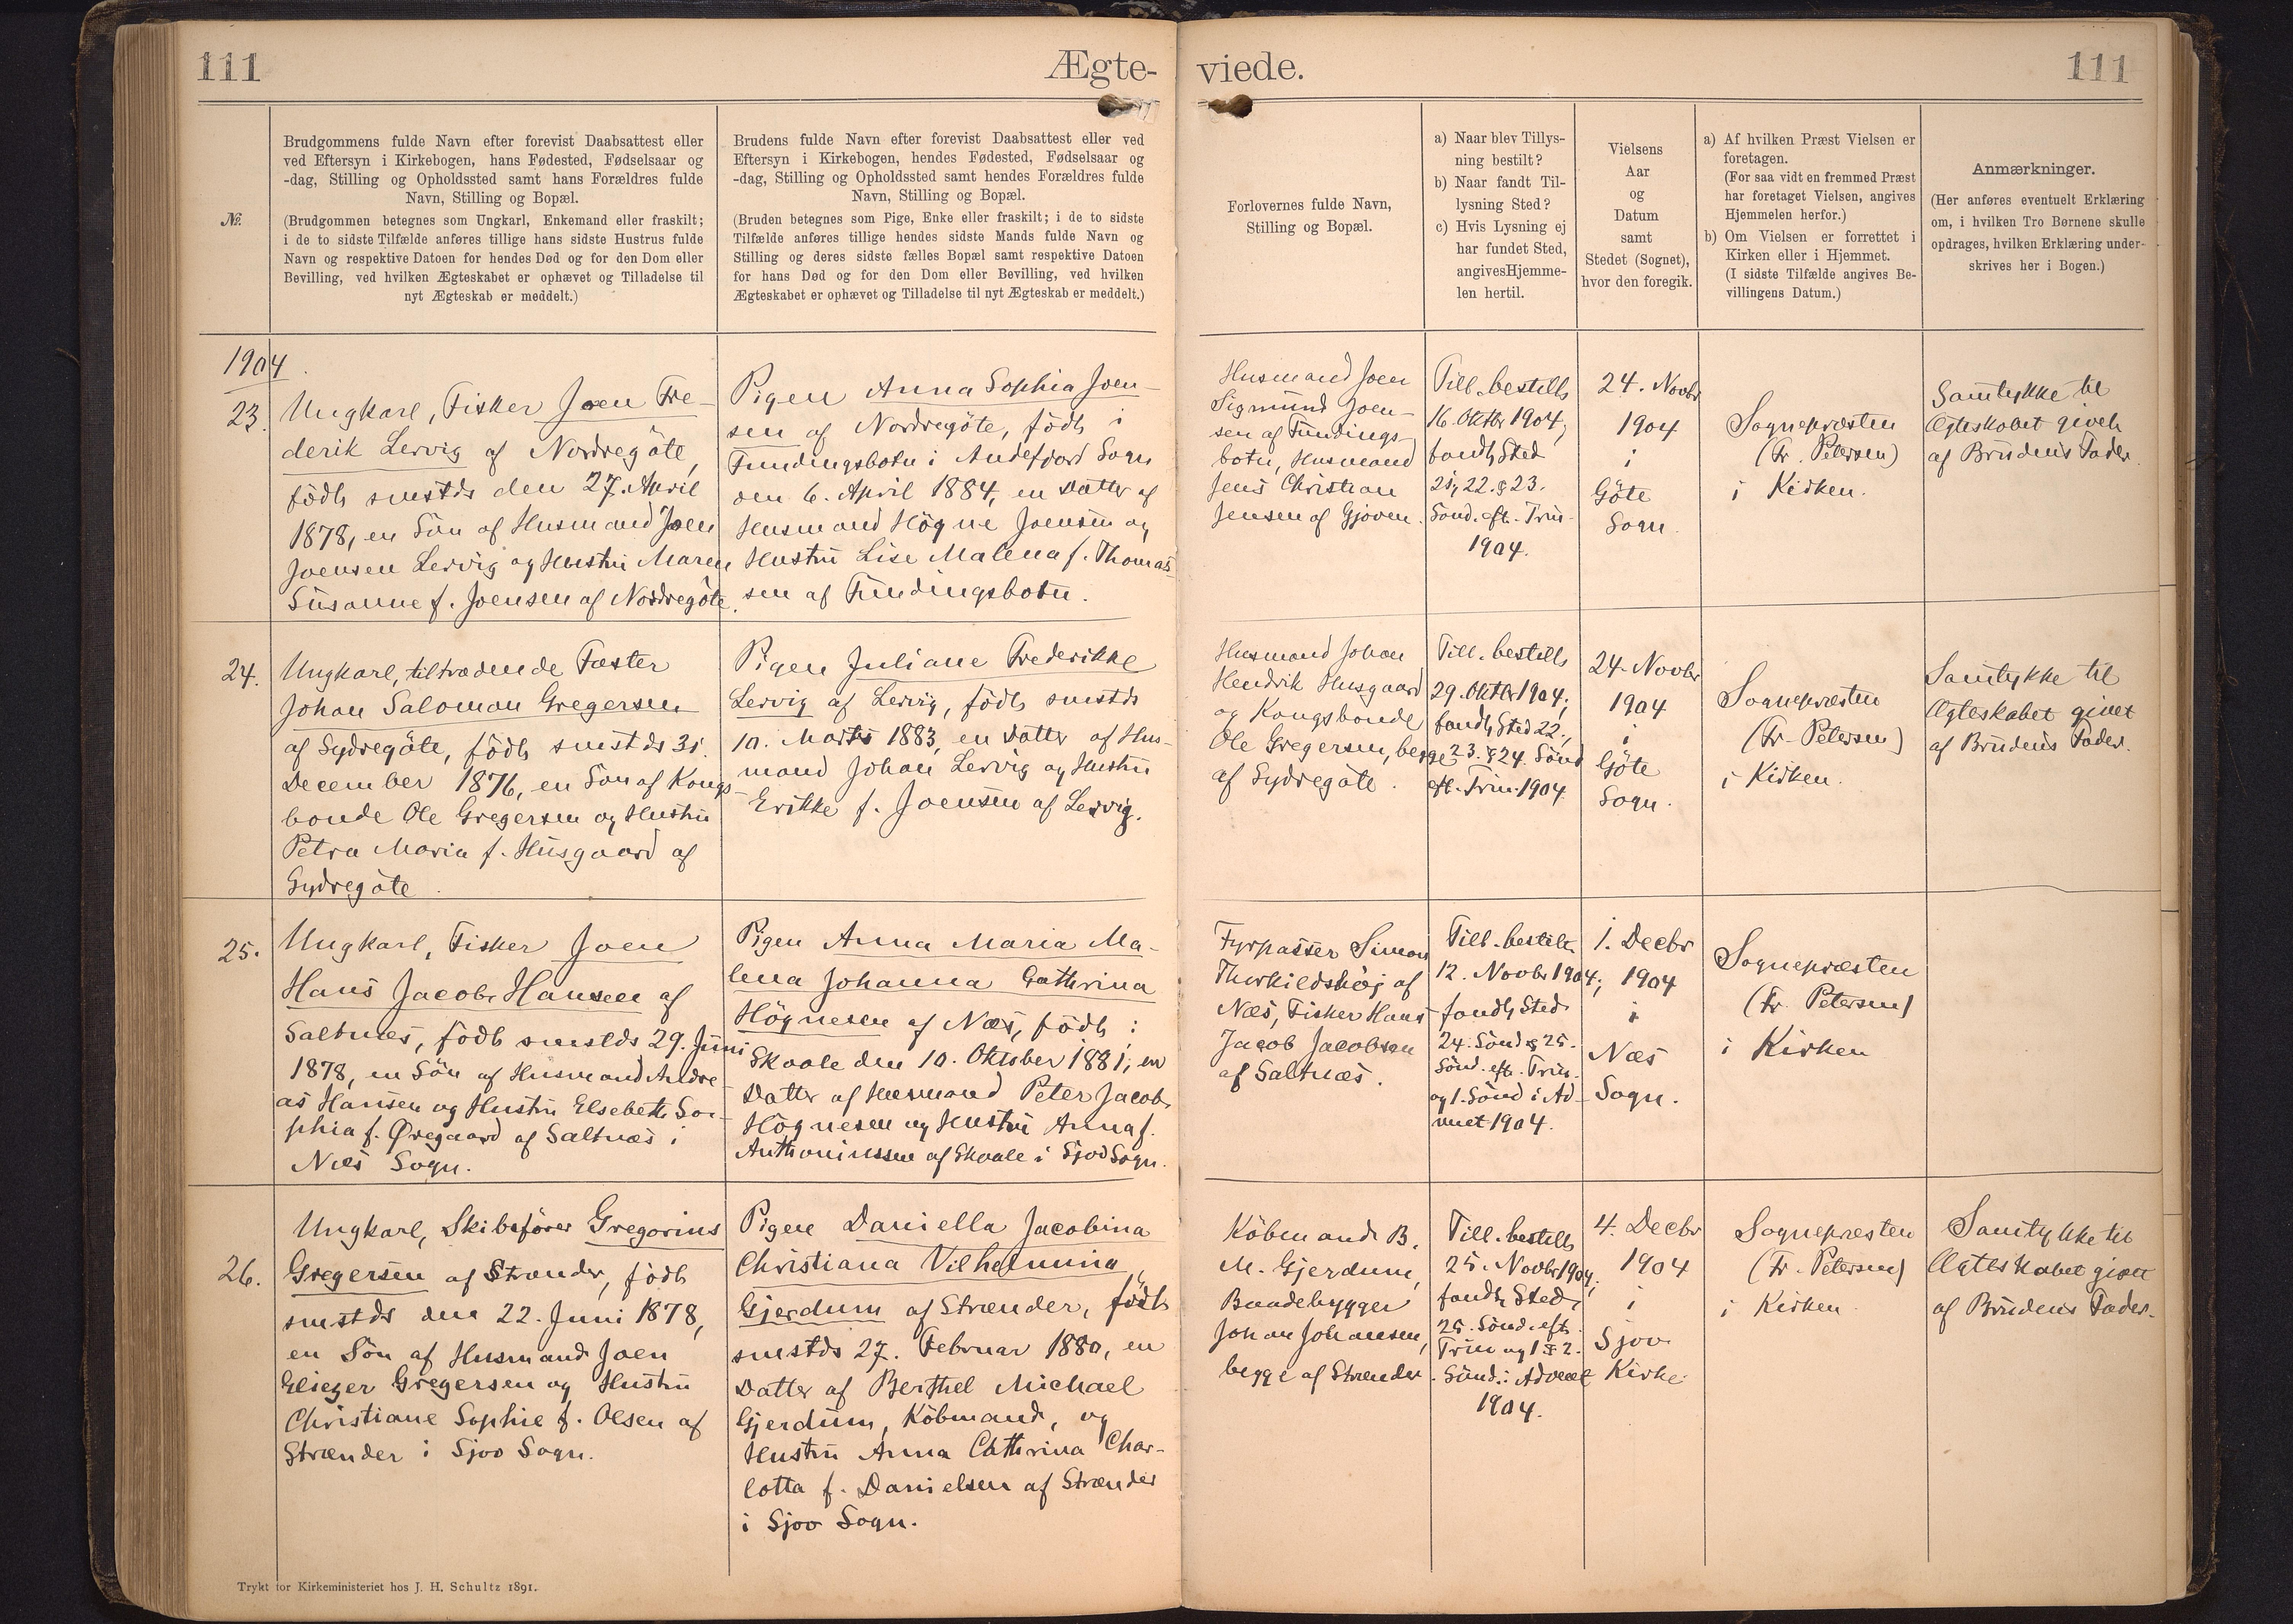 111
Ægte-
viede.
111
№.
Brudgommens fulde Navn efter forevist Daabsattest eller
ved Eftersyn i Kirkebogen, hans Fødested, Fødselsaar og
-dag, Stilling og Opholdssted samt hans Forældres fulde
Navn, Stilling og Bopæl.
(Brudgommen betegnes som Ungkarl, Enkemand eller fraskilt;
i de to sidste Tilfælde anføres tillige hans sidste Hustrus fulde
Navn og respektive Datoen for hendes Død og for den Dom eller
Bevilling, ved hvilken Ægteskabet er ophævet og Tilladelse til
nyt Ægteskab er meddelt.)
Brudens fulde Navn efter forevist Daabsattest eller ved
Eftersyn i Kirkebogen, hendes Fødested, Fødselsaar og
-dag, Stilling og Opholdssted samt hendes Forældres fulde
Navn, Stilling og Bopæl.
(Bruden betegnes som Pige, Enke eller fraskilt; i de to sidste
Tilfælde anføres tillige hendes sidste Mands fulde Navn og
Stilling og deres sidste fælles Bopæl samt respektive Datoen
for hans Død og for den Dom eller Bevilling, ved hvilken
Ægteskabet er ophævet og Tilladelse til nyt Ægteskab er meddelt.)
Forlovernes fulde Navn,
Stilling og Bopæl.
a) Naar blev Tillys-
ning bestilt?
b) Naar fandt Til-
lysning Sted?
c) Hvis Lysning ej
har fundet Sted,
angivesHjemme-
len hertil.
Vielsens
Aar
og
Datum
samt
Stedet (Sognet),
hvor den foregik.
a) Af hvilken Præst Vielsen er
foretagen.
(For saa vidt en fremmed Præst
har foretaget Vielsen, angives
Hjemmelen herfor.)
b) Om Vielsen er forrettet i
Kirken eller i Hjemmet.
(I sidste Tilfælde angives Be-
villingens Datum.)
Anmærkninger.
(Her anføres eventuelt Erklæring
om, i hvilken Tro Børnene skulle
opdrages, hvilken Erklæring under-
skrives her i Bogen.)
1904.
23.
Ungkarl, Fisker Joen Fre-
derik Lervig af Nordregöte,
födt smstds den 27. April
1878, en Sön af Husmand Joen
Joensen Lervig og Hustru Maren
Susanne f. Joensen af Nordregöte.
Pigen Anna Sophia Joen-
sen af Nordregöte, födt i
Fundingsbotn i Andefjord Sogn
den 6. April 1884, en Datter af
Husmand Högne Joensen og
Hustru Lise Malena f. Thomas-
sen af Fundingsbotn.
Husmand Joen
Sigmund Joen-
sen af Fundings-
botn, Husmand
Jens Christian
Jensen af Gjoven.
Till. bestilt
16. Oktbr 1904;
fandt Sted
21, 22. & 23.
Sönd. eft. Trin.
1904.
24. Novbr
1904
i
Göte
Sogn.
Sognepræsten
(Fr. Petersen)
i Kirken.
Samtykke til
Ægteskabet givet
af Brudens Fader.
24.
Ungkarl, tiltrædende Fæster
Johan Salomon Gregersen
af Sydregöte, födt smstds 31.
December 1876, en Sön af Kongs-
bonde Ole Gregersen og Hustru
Petra Maria f. Husgaard af
Sydregöte.
Pigen Juliane Frederikke
Lervig af Lervig, födt smstds
10. Marts 1883, en Datter af Hus-
mand Johan Lervig og Hustru
Erikke f. Joensen af Lervig.
Husmand Johan
Hendrik Husgaard
og Kongsbonde
Ole Gregersen, begge
af Sydregöte.
Till. bestilt
29. Oktbr 1904;
fandt Sted 22.,
23. & 24. Sönd
eft. Trin. 1904.
24. Novbr
1904
i
Göte
Sogn.
Sognepræsten
(Fr. Petersen)
i Kirken.
Samtykke til
Ægteskabet givet
af Brudens Fader.
25.
Ungkarl, Fisker Joen
Hans Jacob Hansen af
Saltnæs, födt smstds 29. Juni
1878, en Sön af Husmand Andre-
as Hansen og Hustru Elsebeth So-
phia f. Øregaard af Saltnæs i
Næs Sogn.
Pigen Anna Maria Ma-
lena Johanna Cathrina
Högnesen af Næs, födt i
Skaale den 10. Oktober 1881, en
Datter af Husmand Peter Jacob
Högnesen og Hustru Anna f.
Anthoniussen af Skaale i Sjov Sogn.
Fyrpasser Simon
Therkildshöj af
Næs, Fisker Hans
Jacob Jacobsen
af Saltnæs.
Till. bestilt
12. Novbr 1904;
fandt Sted
24. Sönd & 25.
Sönd. eft. Trin.
og 1. Sönd i Ad-
vent 1904.
1. Decbr
1904
i
Næs
Sogn.
Sognepræsten
(Fr. Petersen)
i Kirken
26.
Ungkarl, Skibsförer Gregorius
Gregersen af Strænder, födt
smstds den 22. Juni 1878,
en Sön af Husmand Joen
Eliezer Gregersen og Hustru
Christiane Sophie f. Olsen af
Strænder i Sjov Sogn.
Pigen Daniella Jacobina
Christiana Vilhelmina
Gjerdum af Strænder, födt
smstds 27. Februar 1880, en
Datter af Berthel Michael
Gjerdum, Köbmand, og
Hustru Anna Cathrina Char-
lotta f. Danielsen af Strænder
i Sjov Sogn.
Köbmand B.
M. Gjerdum,
Baadebygger
Johan Johansen,
begge af Strænder.
Till. bestilt
25. Novbr 1904;
fandt Sted
25. Sönd. eft.
Trin og 1 & 2.
Sönd. i Advent
1904.
4. Decbr
1904
i
Sjov
Kirke
Sognepræsten
(Fr. Petersen)
i Kirken
Samtykke til
Ægteskabet givet
af Brudens Fader.
Trykt for Kirkeministeriet hos J. H. Schultz 1891.